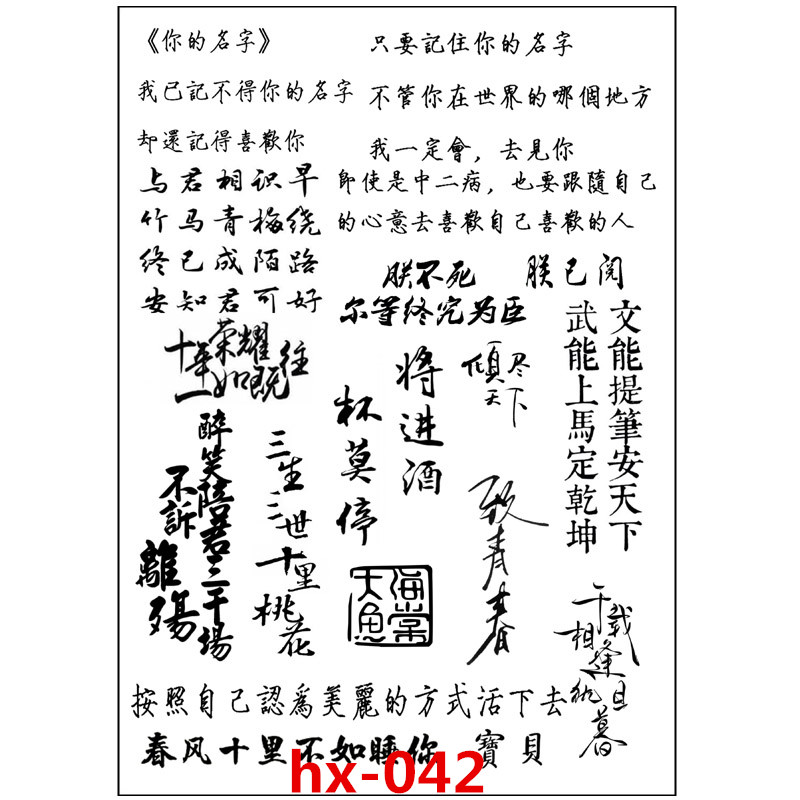 《你的名字》
我已記不得你的名字
却還記得喜歡你
只要記住你的名字
不管你在世界的哪個地方
我一定會，去見你
与君相识早
竹马青梅绕
终已成陌路
安知君可好
即使是中二病，也要跟隨自己
的心意去喜歡自己喜歡的人
朕不死
尔等终究为臣
朕已阅
文能提筆安天下
武能上馬定乾坤
十年荣耀
一如既往
将进酒
杯莫停
倾尽天下
醉笑陪君三千場
不訴離殤
三生三世十里桃花
致青春
海棠
大魚
千载相逢
按照自己認爲美麗的方式活下去
春风十里不如睡你
寶貝
hx-042